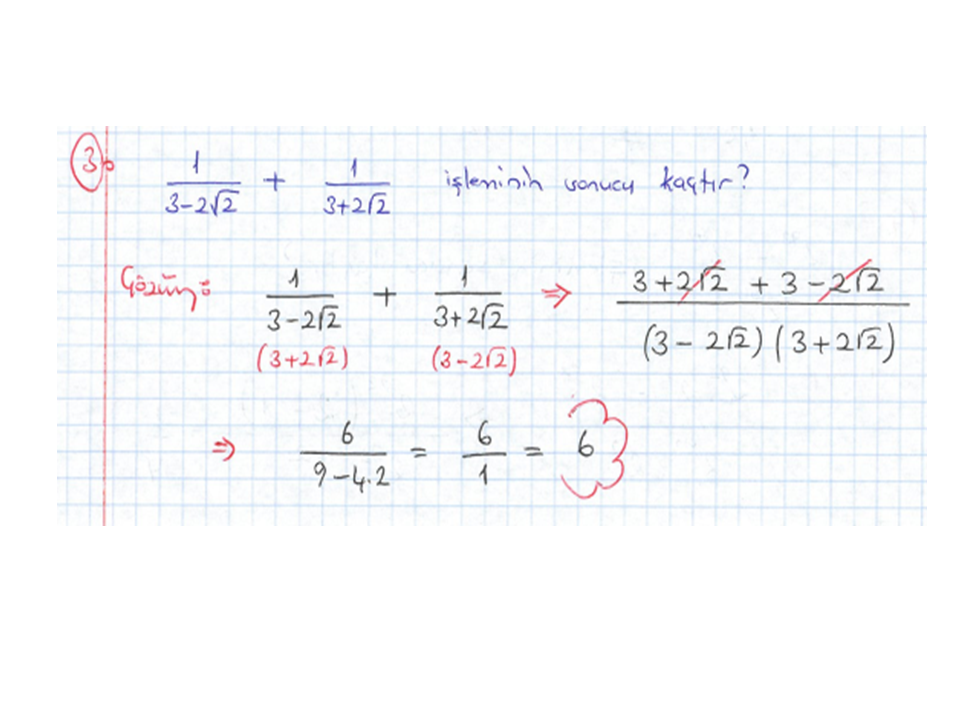 3. 1/(3-2√2) + 1/(3+2√2) işleminin sonucu kaçtır?
Çözüm: 1/(3-2√2) + 1/(3+2√2) ⇒ (3+2√2 + 3-2√2)/((3-2√2)(3+2√2))
(3+2√2) (3-2√2)
⇒ 6/(9-4.2) = 6/1 = 6